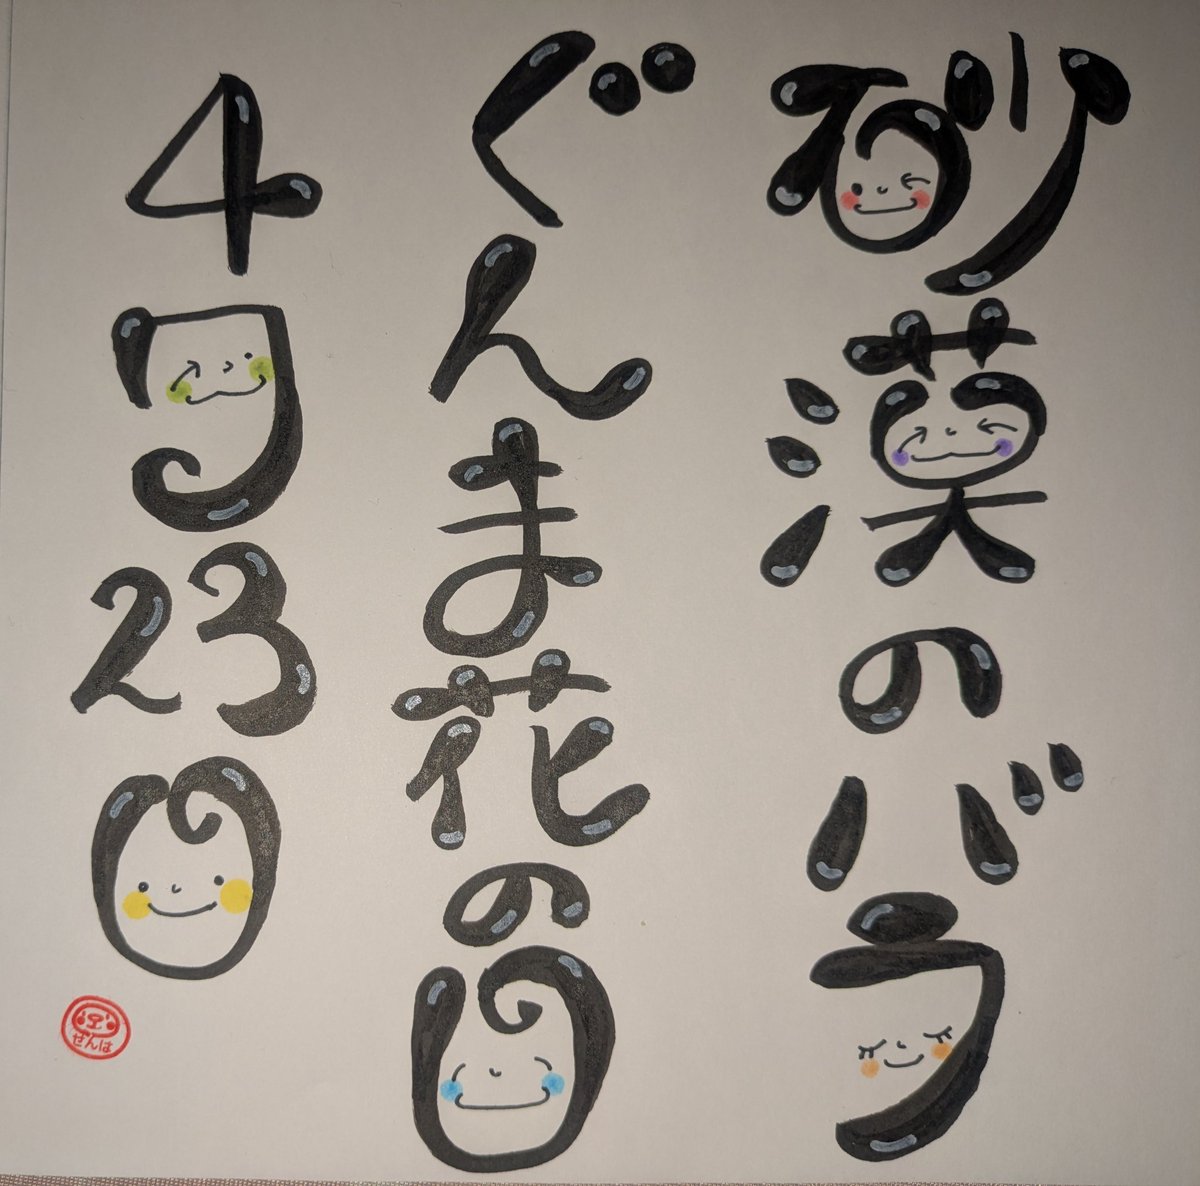 砂漠のバラ
ぐんま花の日
4月23日
ぜんは